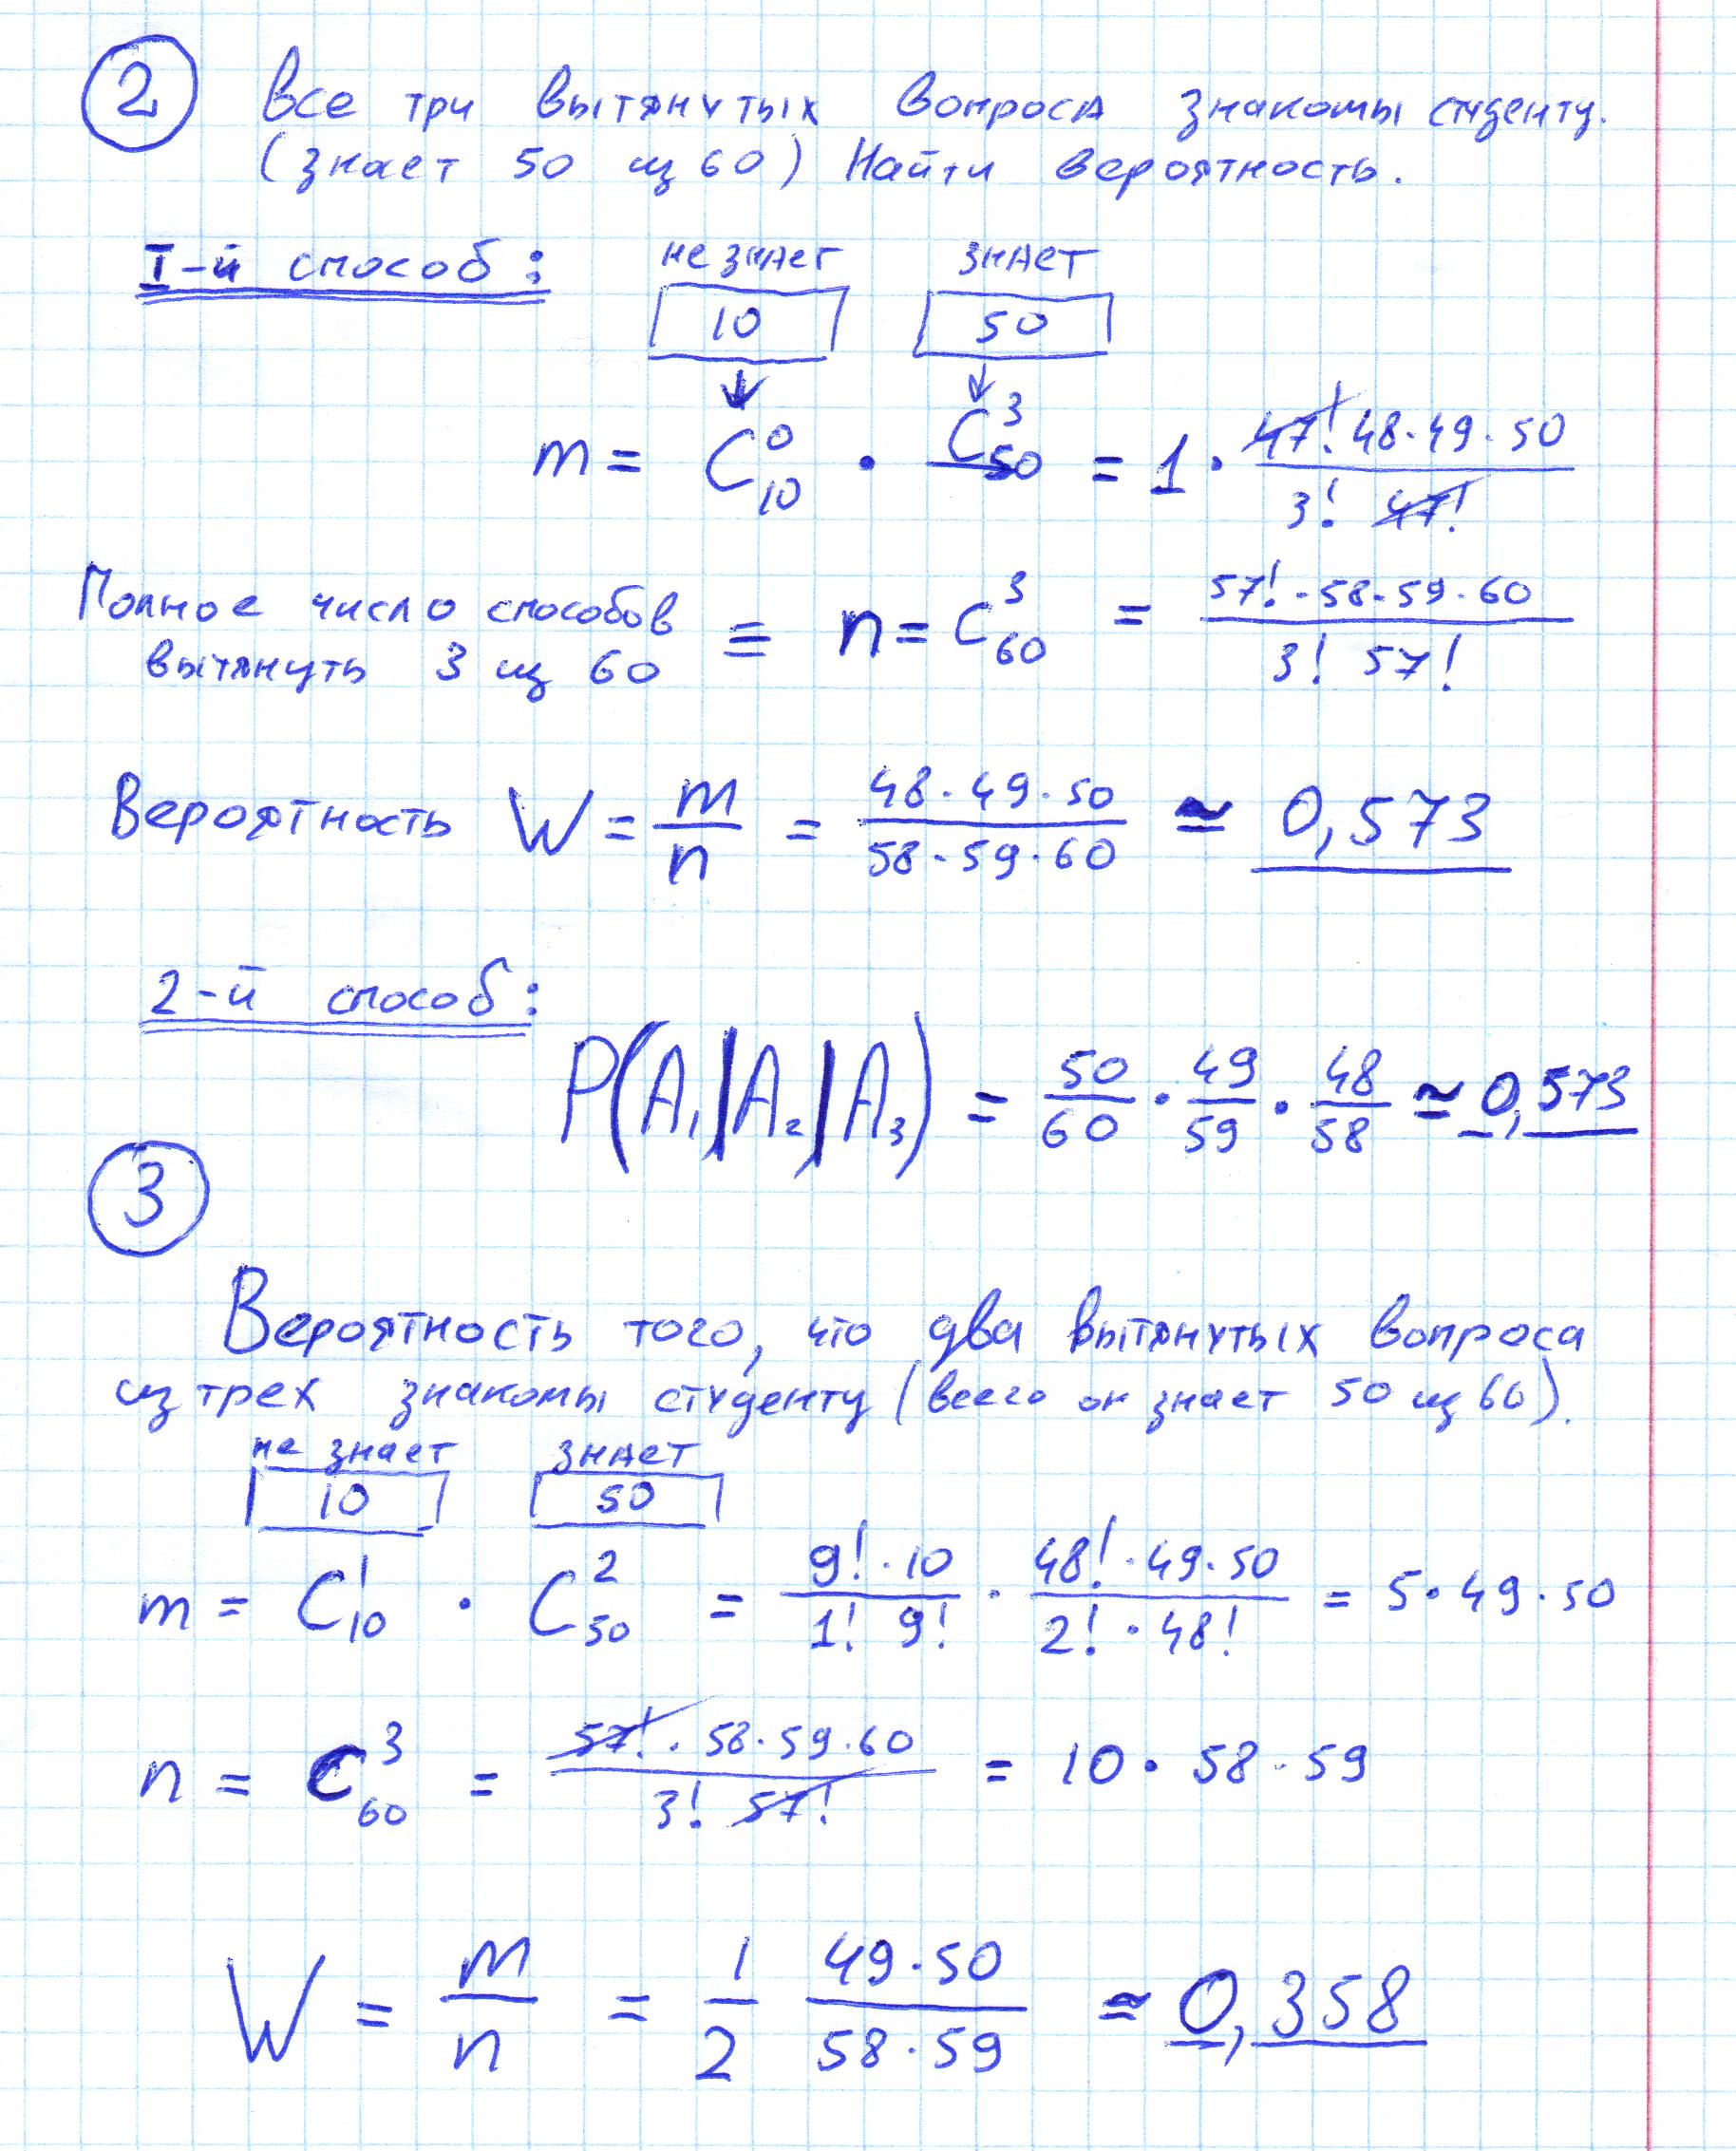 2 Все три вытянутых вопроса знакомы студенту.
(знает 50 из 60) Найти вероятность.
I-й способ: не знает знает
10 50
m = C₁₀⁰ · C₅₀³ = 1 · 47! 48·49·50 / 3! 47!
Полное число способов
вытянуть 3 из 60 = n = C₆₀³ = 57!·58·59·60 / 3! 57!
Вероятность W = m/n = 48·49·50 / 58·59·60 ≃ 0,573
2-й способ:
P(A₁|A₂|A₃) = 50/60 · 49/59 · 48/58 ≃ 0,573
3
Вероятность того, что два вытянутых вопроса
из трех знакомы студенту (всего он знает 50 из 60).
не знает знает
10 50
m = C₁₀¹ · C₅₀² = 9!·10 / 1! 9! · 48!·49·50 / 2!·48! = 5·49·50
n = C₆₀³ = 57!·58·59·60 / 3! 57! = 10·58·59
W = m/n = 1/2 49·50 / 58·59 ≃ 0,358